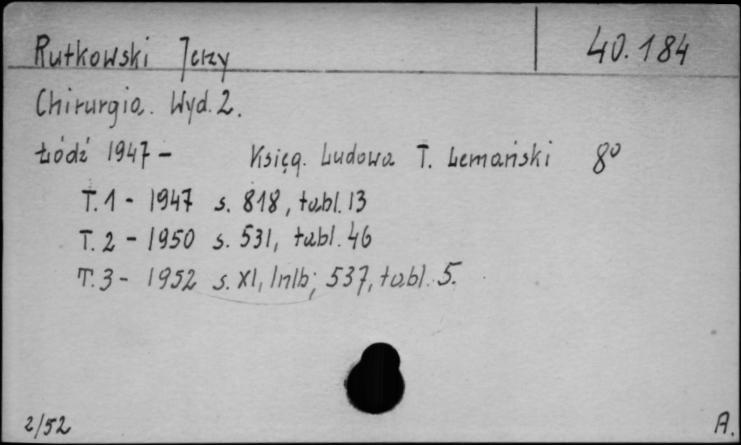 Rutkowski Jerzy 40.184
Chirurgia. Wyd. 2.
Łódź 1947 - Księg. Ludowa T. Lemański 8°
T. 1 - 1947 s. 818, tabl. 13
T. 2 - 1950 s. 531, tabl. 46
T. 3 - 1952 s. XI, 1nlb; 537, tabl. 5.
2/52 A.